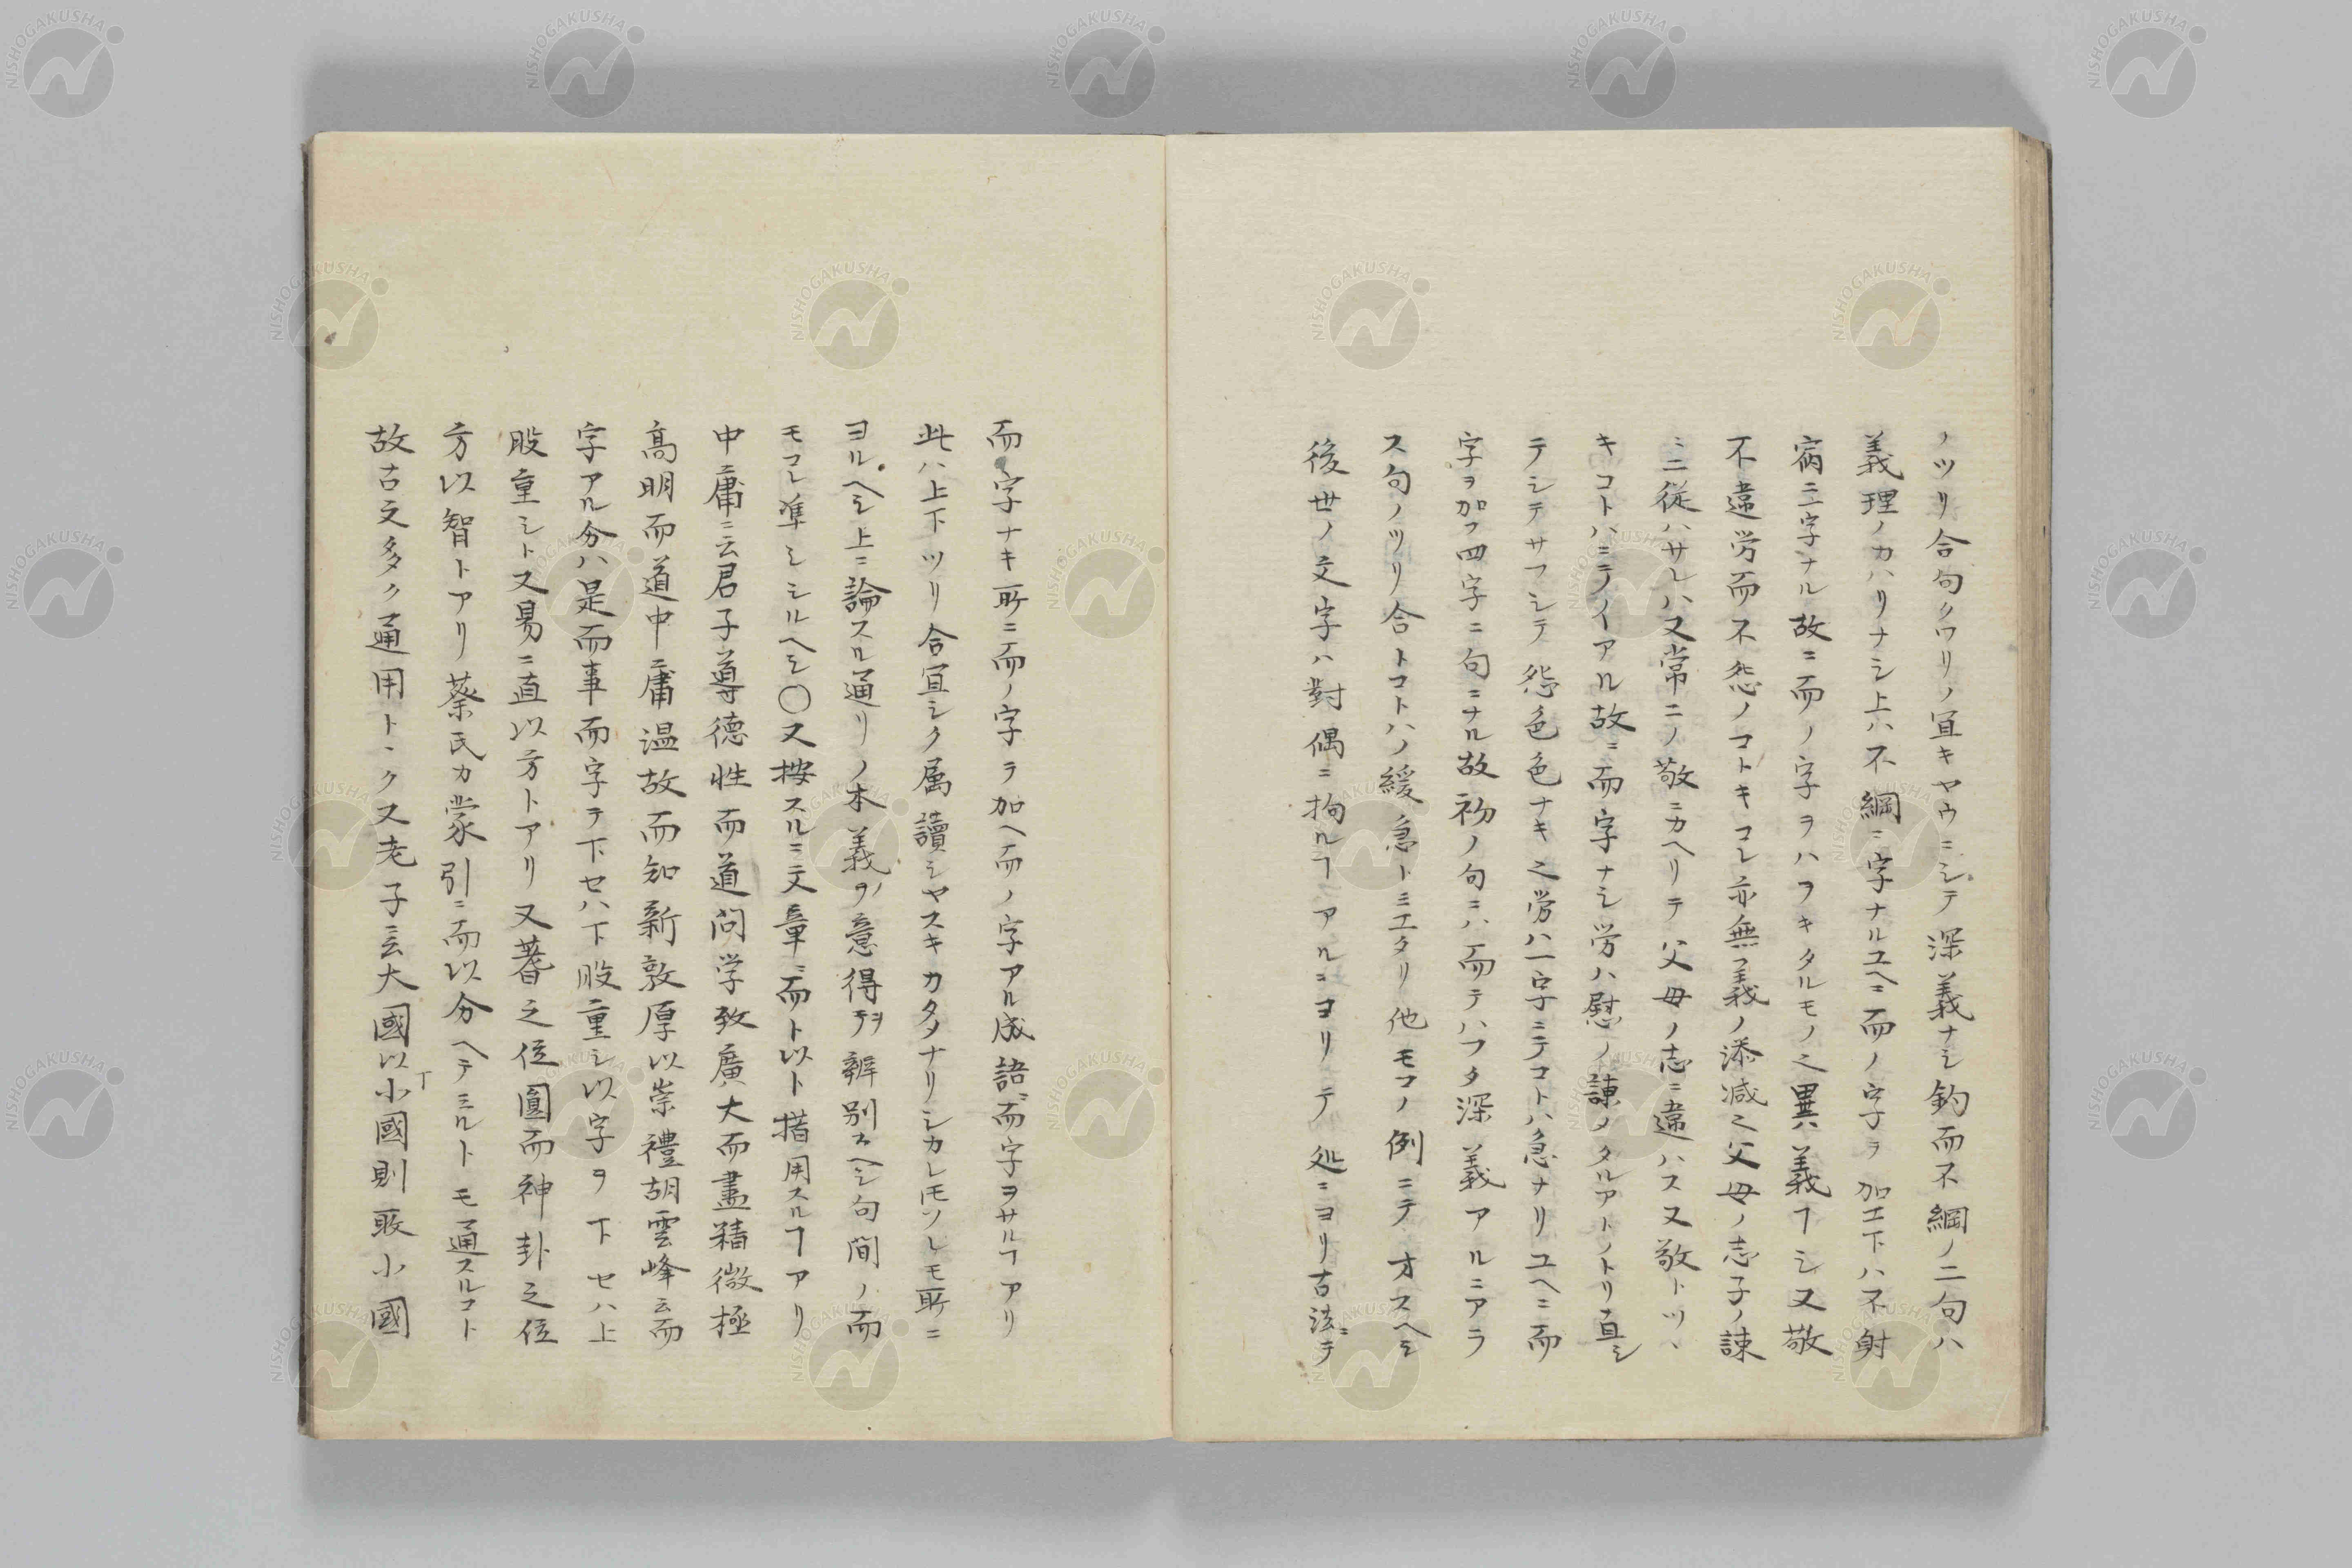 ノツリ合句クワリノ宜キヤウニシテ深義ナシ釣而不綱ノ二句ハ
義理ノカハリナシ上ハ不綱ニ字ナルユヘニ而ノ字ヲ加エ下ハ不射
宿三字ナル故ニ而ノ字ヲハフキタルモノ之異義ヿシ又敬
不違労而不怨ノコトキコレ亦無義ノ添减之父母ノ志子ノ諌
ミニ従ハサレハ又常ニノ敬ニカヘリテ父母ノ志ニ違ハス又敬トツヽ
キコトハミライアル故ニ而字ナシ労ハ慰ノ諌メタルアトノトリ直シ
テシテサフシテ怨色色ナキ之労ハ一字ニテコトハ急ナリユヘニ而
字ヲ加フ四字ニ句ニナル故初ノ句ニハ而テハフタ深義アルニアラ
ス句ノツリ合トコトハノ緩急トミエタリ他モコノ例ニテオスヘシ
後世ノ文字ハ對偶ニ拘ルヿアルニヨリテ処ニヨリ古法ニテ
而字ナキ所ニ而ノ字ヲ加ヘ而ノ字アル成語ニ而字ヲサルヿアリ
此ハ上下ツリ合宜シク属讀シヤスキカタメナリシカレ𪜈ソレモ所ニ
ヨルヘシ上ニ論スル通リノ本義ヲノ意得テヨリ辨別スヘシ句間ノ而
モコレ準シシルヘシ〇又按スルニ文章ニ而ト以ト揩用スルヿアリ
中庸ニ云君子尊德性而道問学致廣大而盡精微極
髙明而道中庸温故而知新敦厚以崇禮胡雲峰云而
字アル分ハ是而事而字ヲ下セハ下股重シ以字ヲ下セハ上
股重シト又易ニ直以方トアリ又蓍之位圓而神卦之位
方以智トアリ蔡氏カ蒙引ニ而以分ヘテミルトモ通スルコト
故古文多ク通用トヽク又老子ニ云大國以小國則取小國